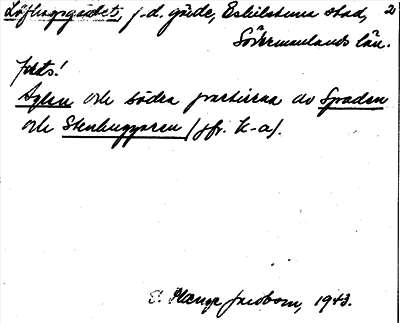 Löfhagsgärdet, f.d. gärde, Eskilstuna stad, 2
Södermanlands län.
forts!
Aglan och södra partierna av Spaden
och Stenhuggaren (jfr. K-a).
E. Jacobson, 1943.